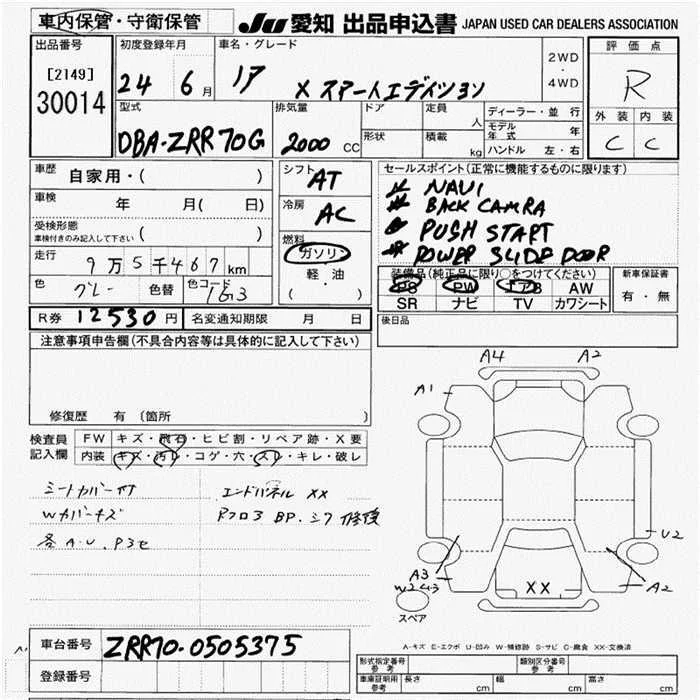 車内保管・守衛保管
JU 愛知 出品申込書 JAPAN USED CAR DEALERS ASSOCIATION
出品番号
[2149]
30014
初度登録年月
24 6月
車名・グレード
X スマートエディション
2WD
・
4WD
評価点
R
外装 内装
C C
型式
DBA-ZRR70G
排気量
2000 CC
ドア
形状
定員 人
積載 kg
ディーラー・並行
モデル年式 年
ハンドル 左・右
車歴
自家用・( )
車検 年 月( 日)
受検形態
車検付きのみ記入して下さい ( )
走行
9万5千467km
色
グレー
色替
色コード
1G3
シフト
AT
冷房
AC
燃料
ガソリン
軽・油
( )
セールスポイント(正常に機能するものに限ります)
NAVI
BACK CAMRA
PUSH START
POWER SLIDE DOOR
装備品(純正品に限り○をつけてください)
PS PW エアB AW
SR ナビ TV カワシート
新車保証書
有・無
R券 12530円 名変通知期限 月 日
後日品
注意事項申告欄(不具合内容等は具体的に記入して下さい)
修復歴 有 (箇所 )
検査員記入欄
FW キズ・飛石・ヒビ割・リペア跡・X要
内装 キズ・汚レ・コゲ・穴・スレ・キレ・破レ
シートカバー付
Wカバーキズ
各A.U.
エンドパネル XX
Rフロア BP.シワ 修復
A4 A2
A1
U2
A3
A2
XX
スペア
A-キズ E-エクボ U-凹み W-補修跡 S-サビ C-腐食 XX-交換済
車台番号 ZRR70-0505375
登録番号
形式指定番号参考
類別区分番号参考
車庫証明用参考 長さ cm 幅 cm 高さ cm